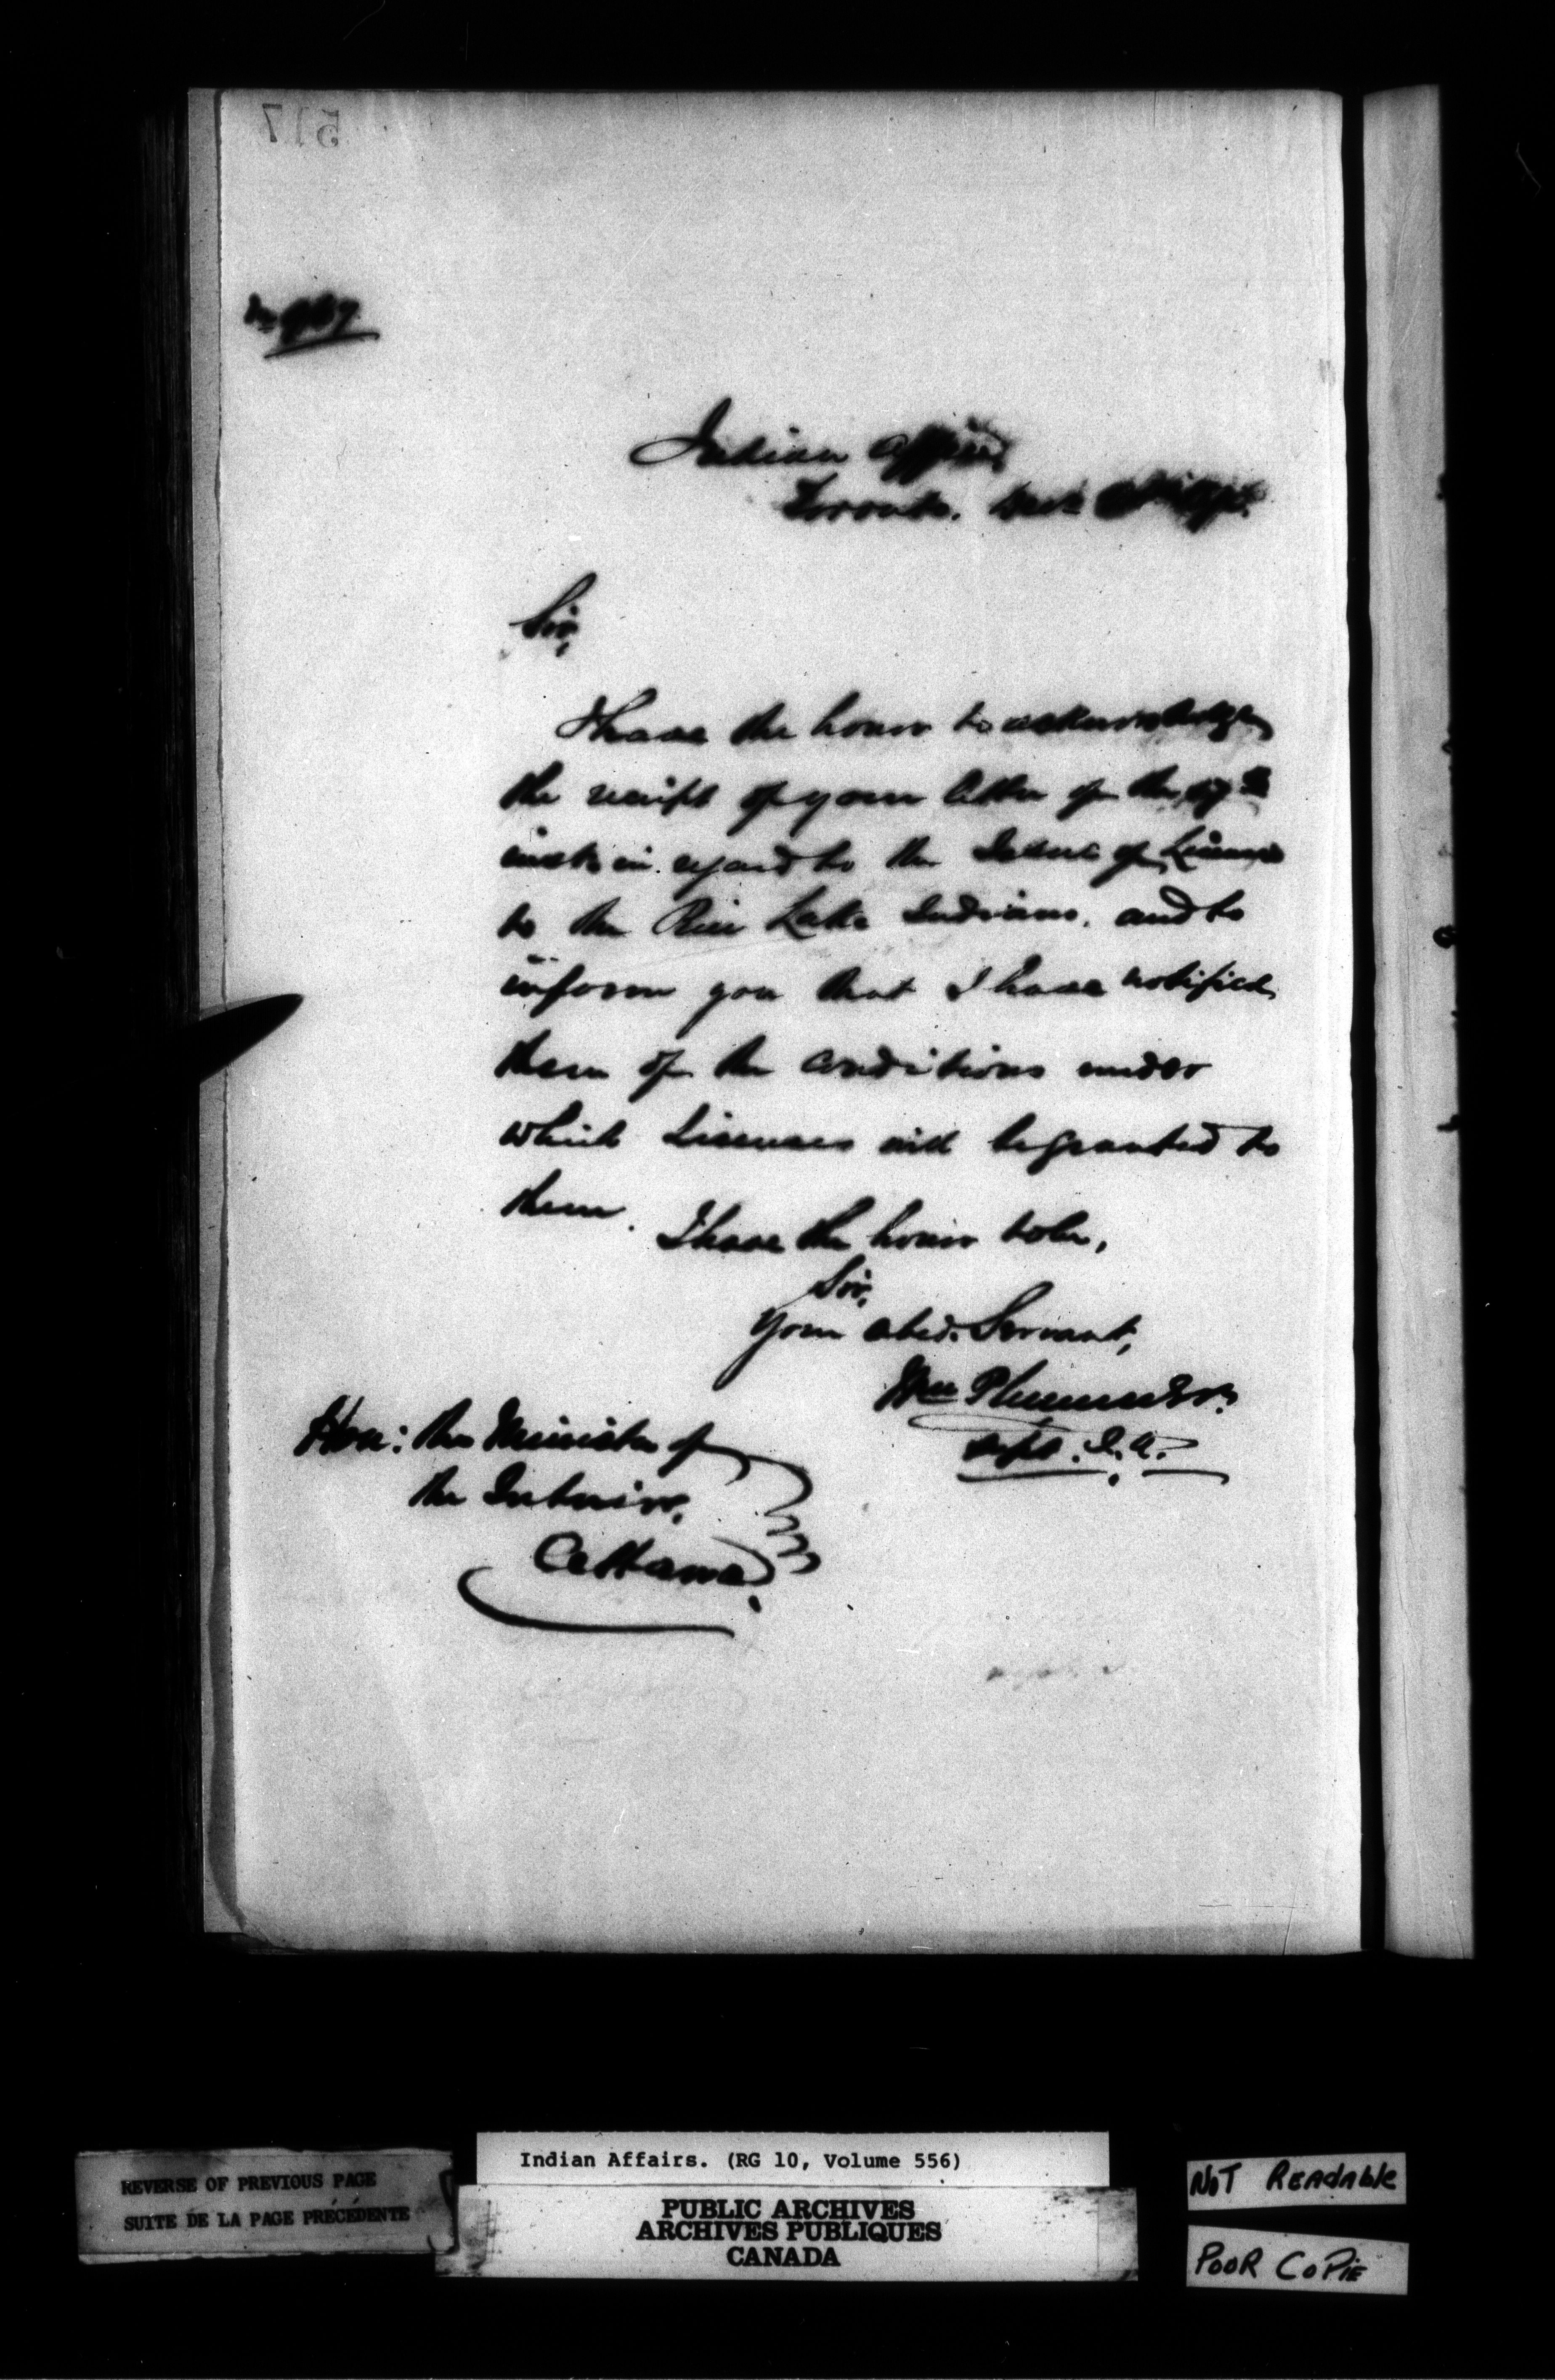 517
Indian Office,
Toronto.
Sir,
I have the honor to acknowledge
the receipt of your letter of the
inst. in regard to the Issue of License
to the Rice Lake Indians, and to
inform you that I have notified
them of the conditions under
which Licenses will be granted to
them.
I have the honor to be,
Sir,
Your obed. Servant,
Wm Plummer
Supt. I. A.
Hon: the Minister of
the Interior,
Ottawa.
REVERSE OF PREVIOUS PAGE
SUITE DE LA PAGE PRÉCÉDENTE
Indian Affairs. (RG 10, Volume 556)
PUBLIC ARCHIVES
ARCHIVES PUBLIQUES
CANADA
NOT READABLE
POOR COPIE